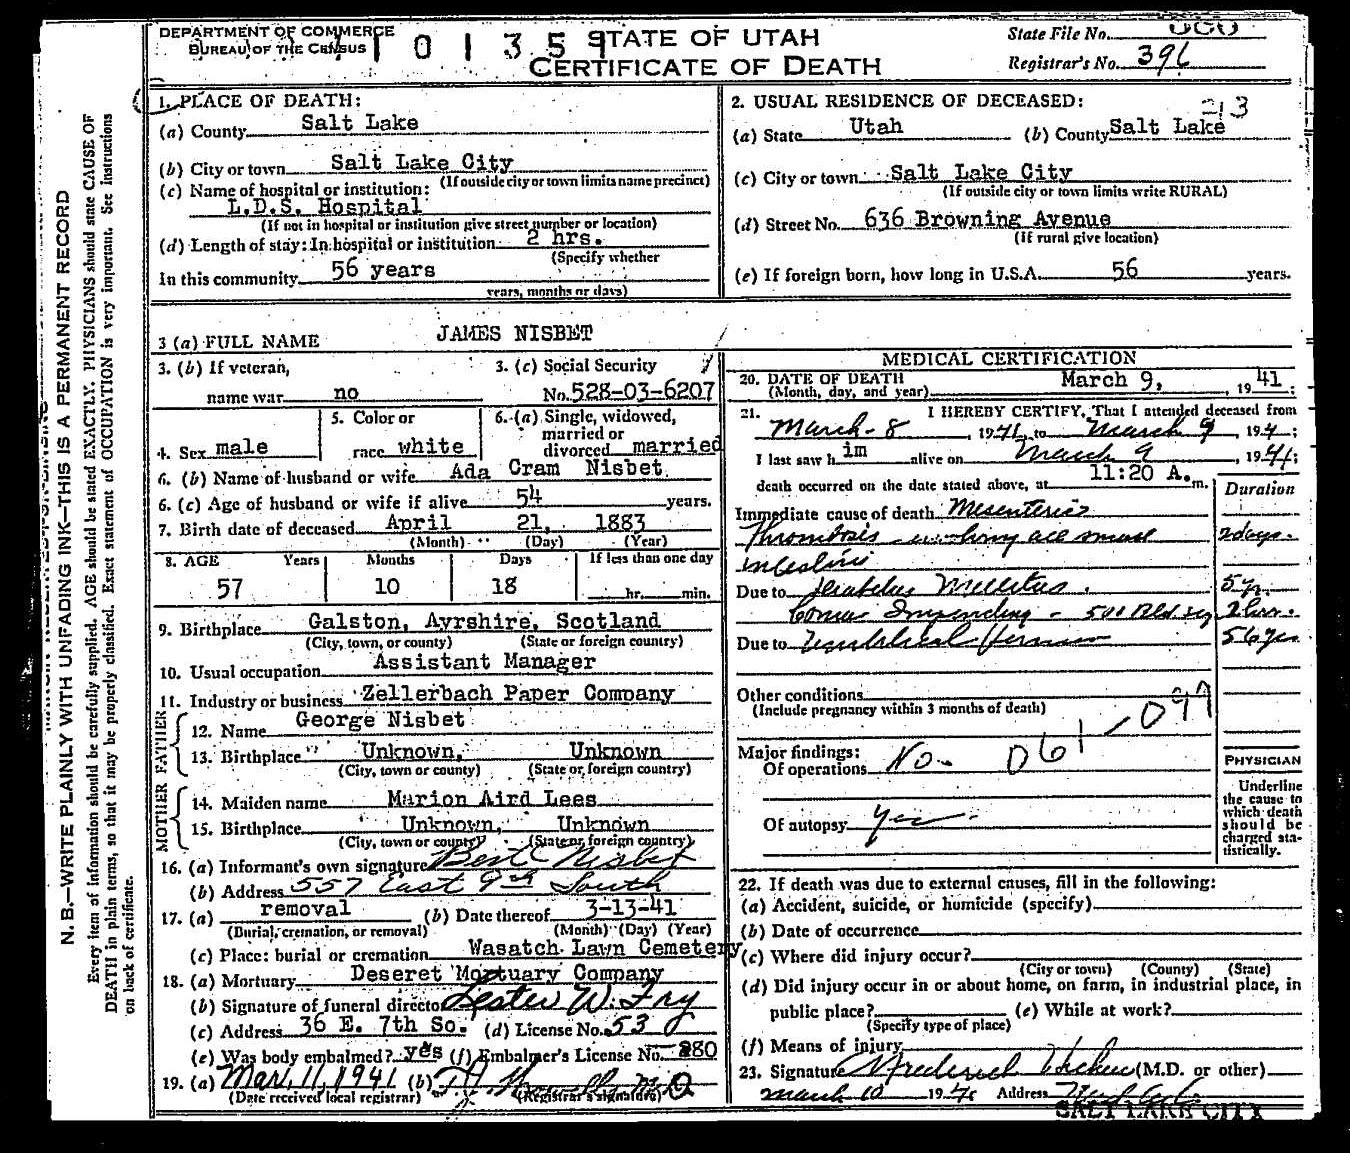 DEPARTMENT OF COMMERCE
BUREAU OF THE CENSUS
1 0 1 3 5 9
STATE OF UTAH
CERTIFICATE OF DEATH
State File No.
Registrar's No. 396
1. PLACE OF DEATH:
(a) County Salt Lake
(b) City or town Salt Lake City
(If outside city or town limits name precinct)
(c) Name of hospital or institution:
L.D.S. Hospital
(If not in hospital or institution give street number or location)
(d) Length of stay: In hospital or institution 2 hrs.
(Specify whether
In this community 56 years
years, months or days)
2. USUAL RESIDENCE OF DECEASED:
(a) State Utah (b) County Salt Lake
(c) City or town Salt Lake City
(If outside city or town limits write RURAL)
(d) Street No. 636 Browning Avenue
(If rural give location)
(e) If foreign born, how long in U.S.A. 56 years.
3 (a) FULL NAME JAMES NISBET
3. (b) If veteran,
name war no
3. (c) Social Security
No. 528-03-6207
4. Sex male
5. Color or
race white
6. (a) Single, widowed,
married or
divorced married
6. (b) Name of husband or wife Ada Cram Nisbet
6. (c) Age of husband or wife if alive 54 years.
7. Birth date of deceased April 21, 1883
(Month) (Day) (Year)
8. AGE Years Months Days If less than one day
57 10 18 hr. min.
9. Birthplace Galston, Ayrshire, Scotland
(City, town, or county) (State or foreign country)
10. Usual occupation Assistant Manager
11. Industry or business Zellerbach Paper Company
FATHER
12. Name George Nisbet
13. Birthplace Unknown, Unknown
(City, town or county) (State or foreign country)
MOTHER
14. Maiden name Marion Aird Lees
15. Birthplace Unknown, Unknown
(City, town or county) (State or foreign country)
16. (a) Informant's own signature Bert Nisbet
(b) Address 557 East 9th South
17. (a) removal (b) Date thereof 3-13-41
(Burial, cremation, or removal) (Month) (Day) (Year)
(c) Place: burial or cremation Wasatch Lawn Cemetery
18. (a) Mortuary Deseret Mortuary Company
(b) Signature of funeral director Lester W. Fry
(c) Address 36 E. 7th So. (d) License No. 53
(e) Was body embalmed? yes (f) Embalmer's License No. 280
19. (a) Mar. 11, 1941 (b)
(Date received local registrar) (Registrar's signature)
MEDICAL CERTIFICATION
20. DATE OF DEATH March 9, 1941;
(Month, day, and year)
21. I HEREBY CERTIFY, That I attended deceased from
March 8, 1941, to March 9, 194;
I last saw him alive on March 9, 1941;
death occurred on the date stated above, at 11:20 A. m.
Duration
Immediate cause of death Mesenteric
Thrombosis involving all small 2 days.
intestine
Due to Diabetes Mellitus. 5 yr.
Coma Impending - 500 Bld. sug 2 hrs.
Due to Umbilical Hernia 56 yrs
Other conditions
(Include pregnancy within 3 months of death)
061 - 099
Major findings:
Of operations No.
Of autopsy Yes.
PHYSICIAN
Underline
the cause to
which death
should be
charged sta-
tistically.
22. If death was due to external causes, fill in the following:
(a) Accident, suicide, or homicide (specify)
(b) Date of occurrence
(c) Where did injury occur?
(City or town) (County) (State)
(d) Did injury occur in or about home, on farm, in industrial place, in
public place? (e) While at work?
(Specify type of place)
(f) Means of injury
23. Signature Frederick (M.D. or other)
March 10 1941 Address
SALT LAKE CITY
N. B.—WRITE PLAINLY WITH UNFADING INK—THIS IS A PERMANENT RECORD
Every item of information should be carefully supplied. AGE should be stated EXACTLY. PHYSICIANS should state CAUSE OF
DEATH in plain terms, so that it may be properly classified. Exact statement of OCCUPATION is very important. See instructions
on back of certificate.